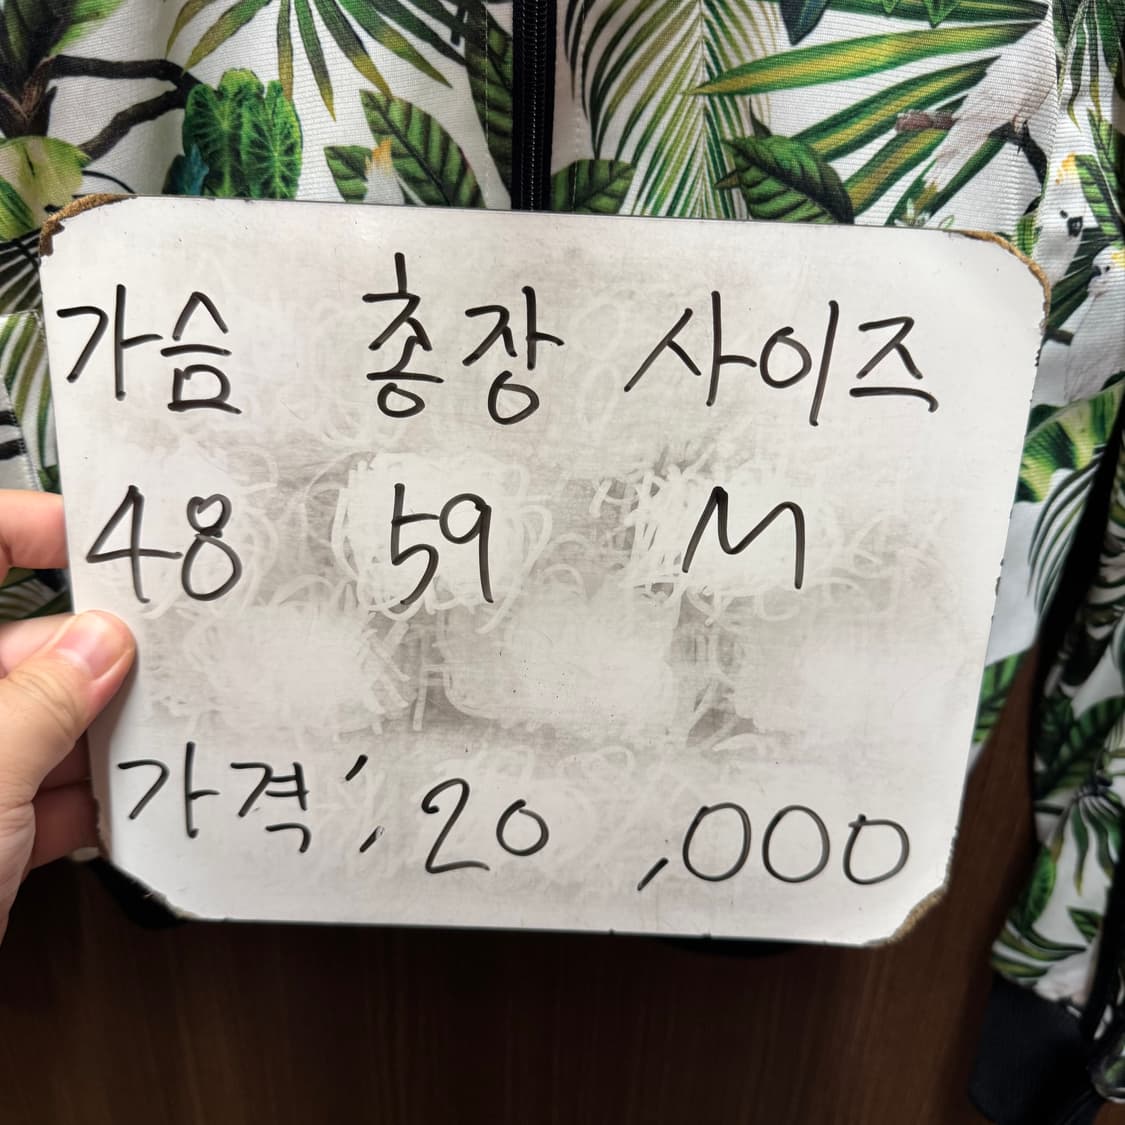 가슴 총장 사이즈
48 59 M
가격; 20,000